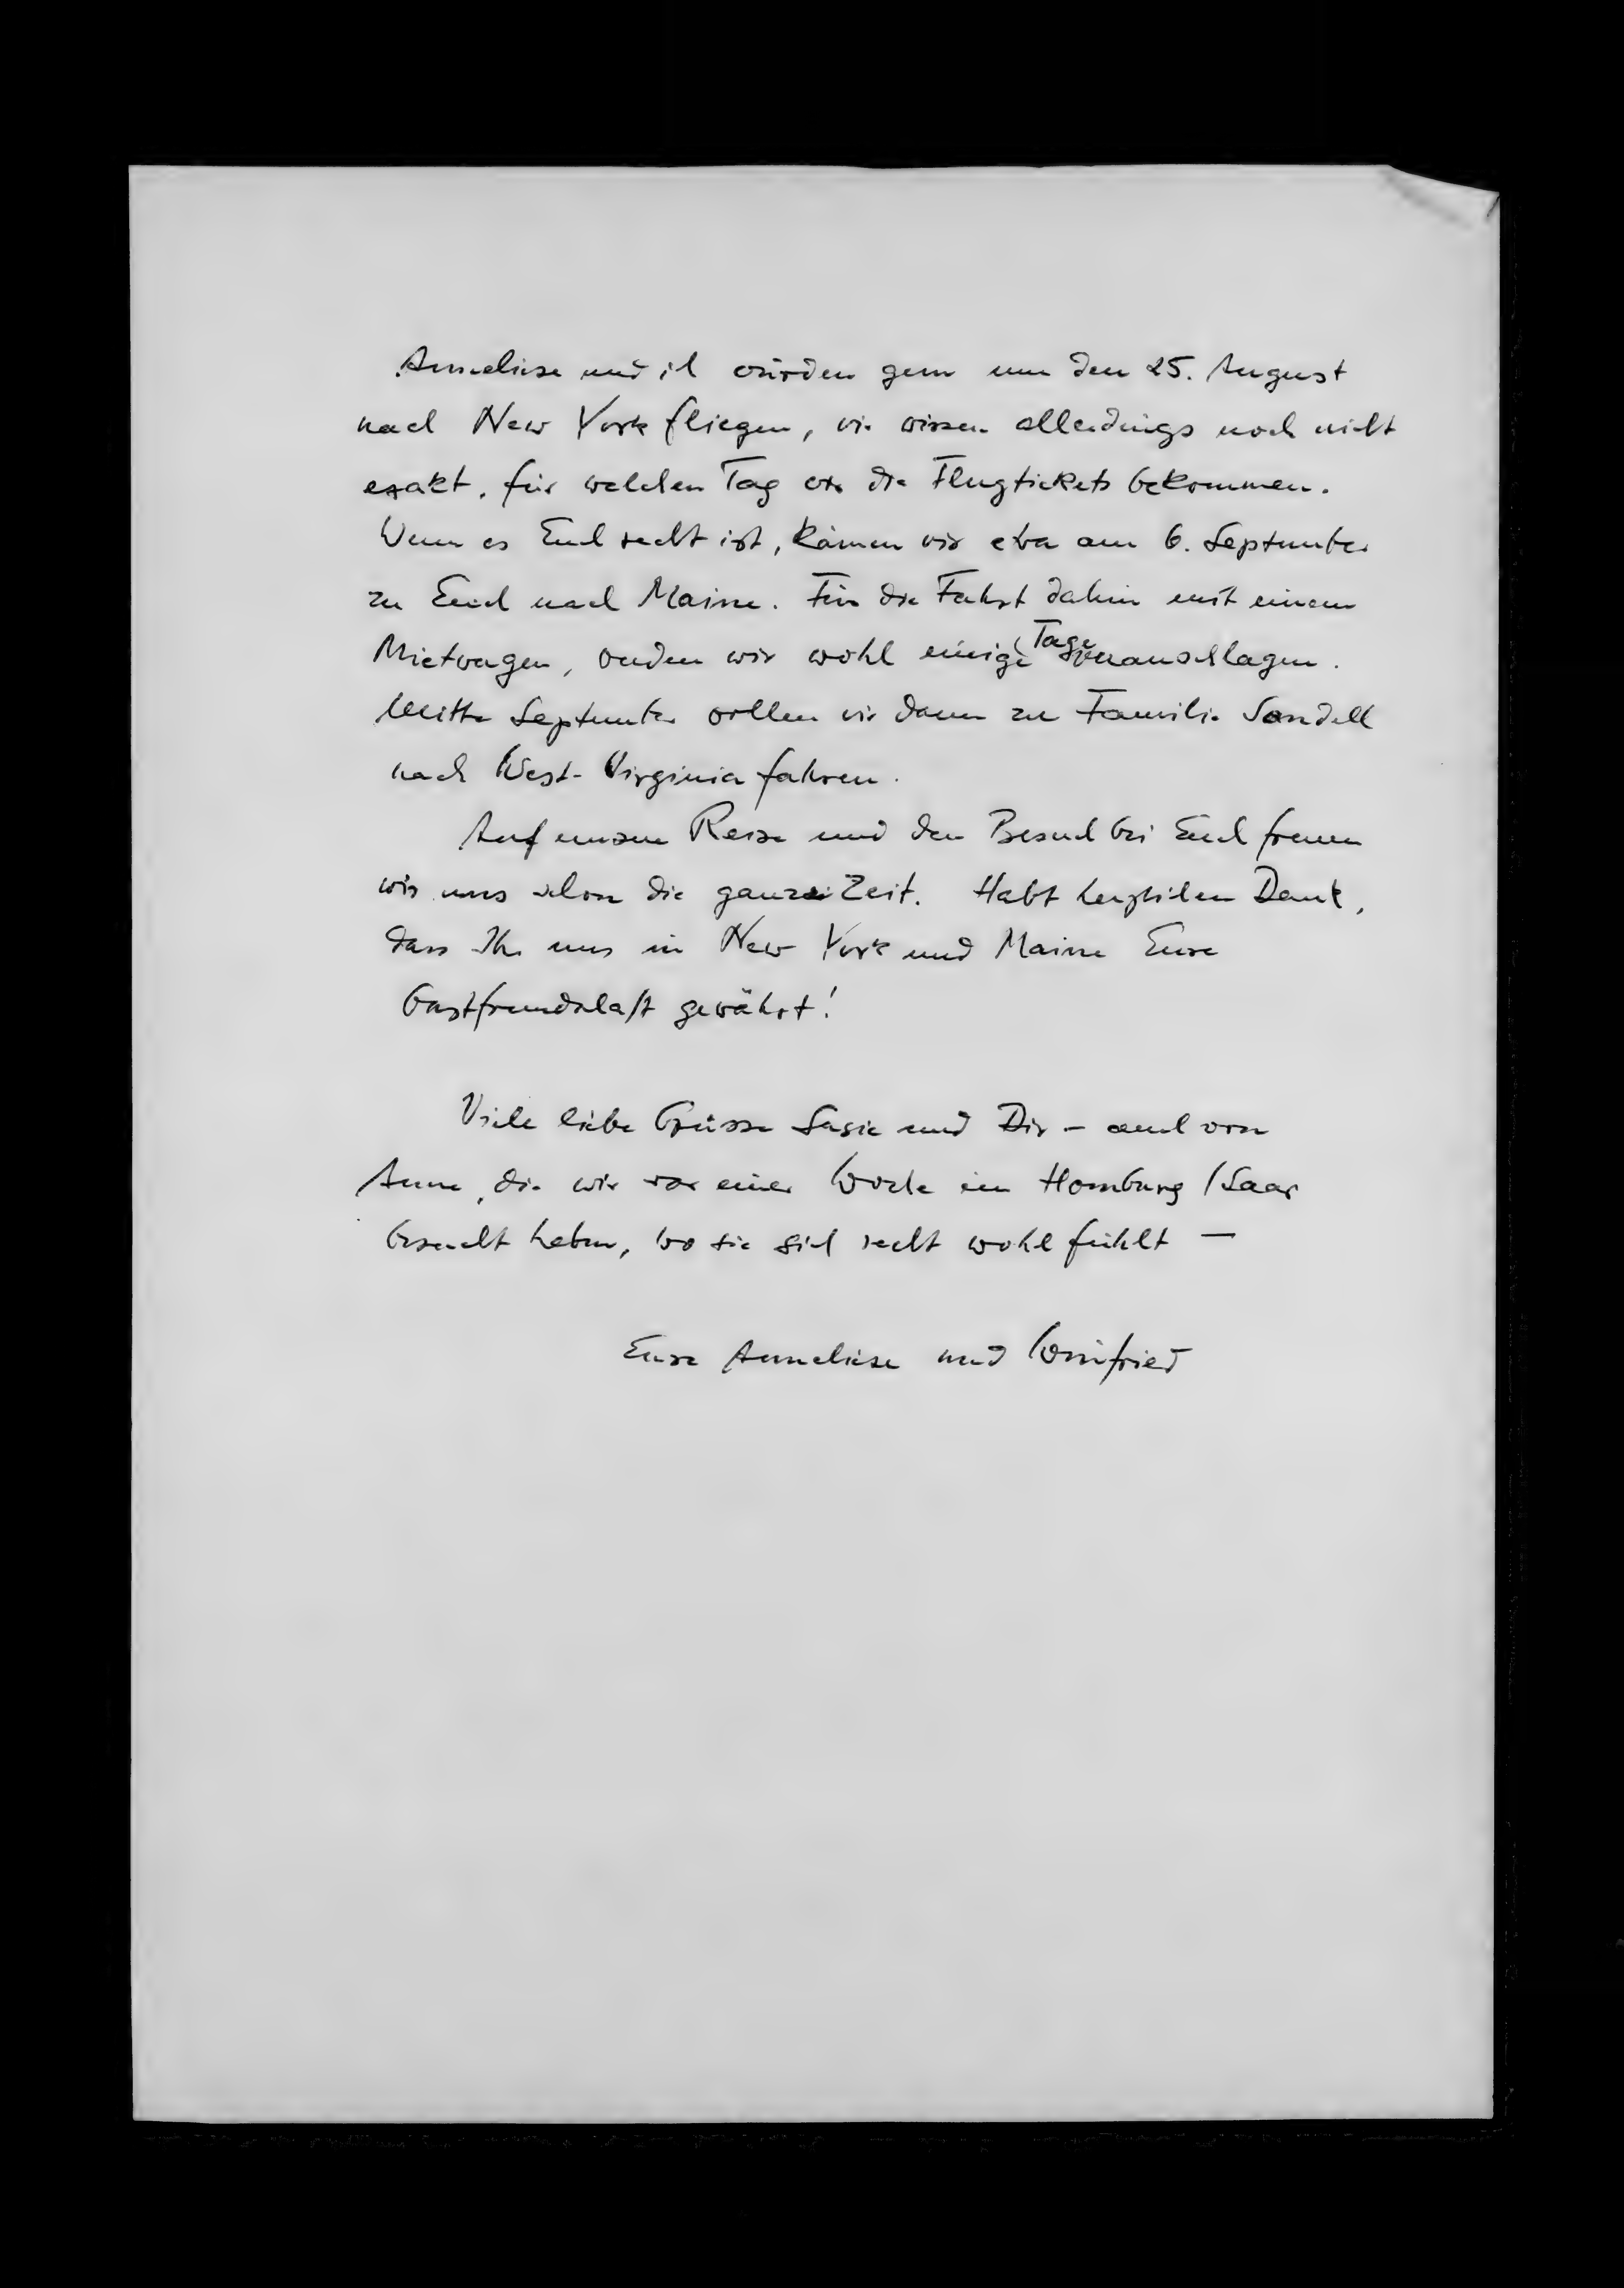 Anneliese und ich würden gern um den 25. August
nach New York fliegen, wir wissen allerdings noch nicht
exakt, für welchen Tag wir die Flugtickets bekommen.
Wenn es Euch recht ist, kämen wir etwa am 6. September
zu Euch nach Maine. Für die Fahrt dahin mit einem
Mietwagen, werden wir wohl einige Tage veranschlagen.
Mitte September wollen wir dann zu Familie Sandell
nach West-Virginia fahren.
Auf unsere Reise und den Besuch bei Euch freuen
wir uns schon die ganze Zeit. Habt herzlichen Dank,
dass Ihr uns in New York und Maine Eure
Gastfreundschaft gewährt!
Viele liebe Grüsse Susie und Dir - auch von
Anne, die wir vor einer Woche in Homburg/Saar
besucht haben, wo sie sich recht wohl fühlt —
Eure Anneliese und Winfried